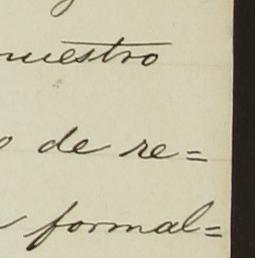 nuestro
de re=
formal=